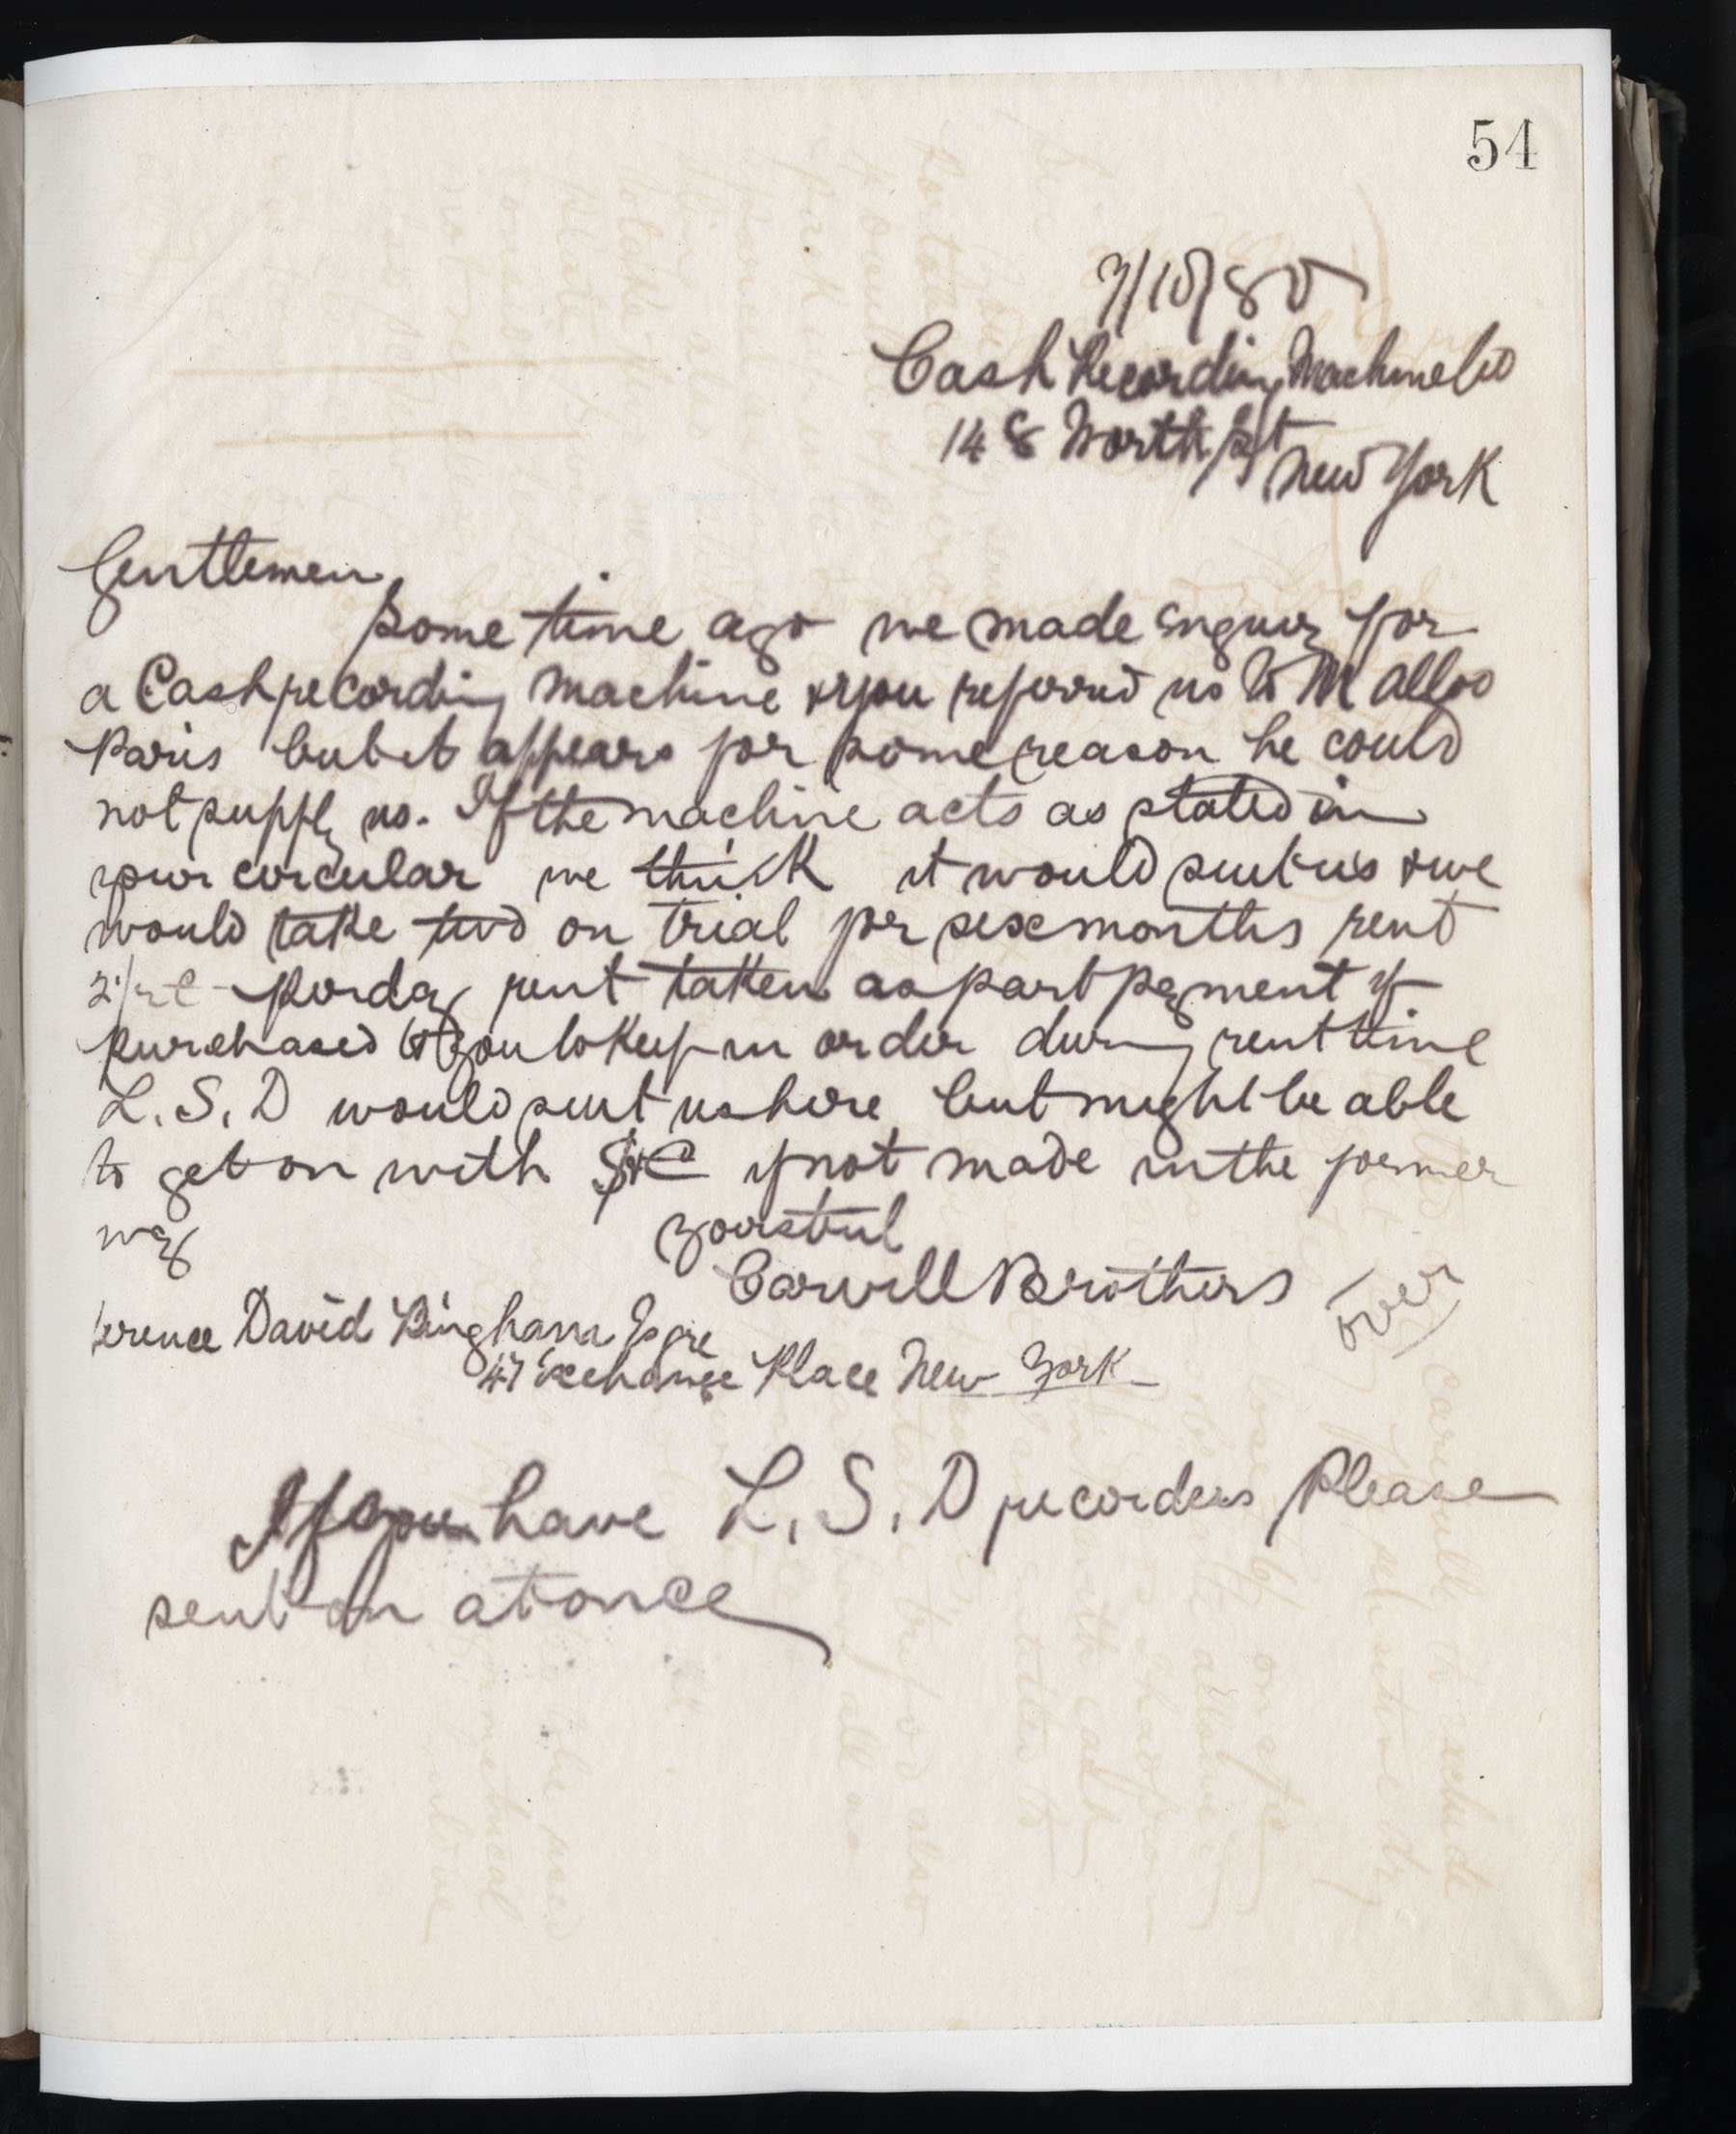 54
Cash Recording Machine Co
148 Worth St
New York
Gentlemen
Some time ago we made enquiry for
a Cash recording machine & you referred us to M
Paris but it appears for some reason he could
not supply us. If the machine acts as stated in
your circular we think it would suit us & we
would take two on trial for six months rent
per day rent taken as part payment if
purchased & you to keep in order during rent time
L. S. D would suit us here but might be able
to get on with $ & C if not made in the former
way
Yours tru
Carvill Brothers
over
David Bingham Esqre
47 Exchange Place New York
If you have L. S. D recorders Please
sent on at once